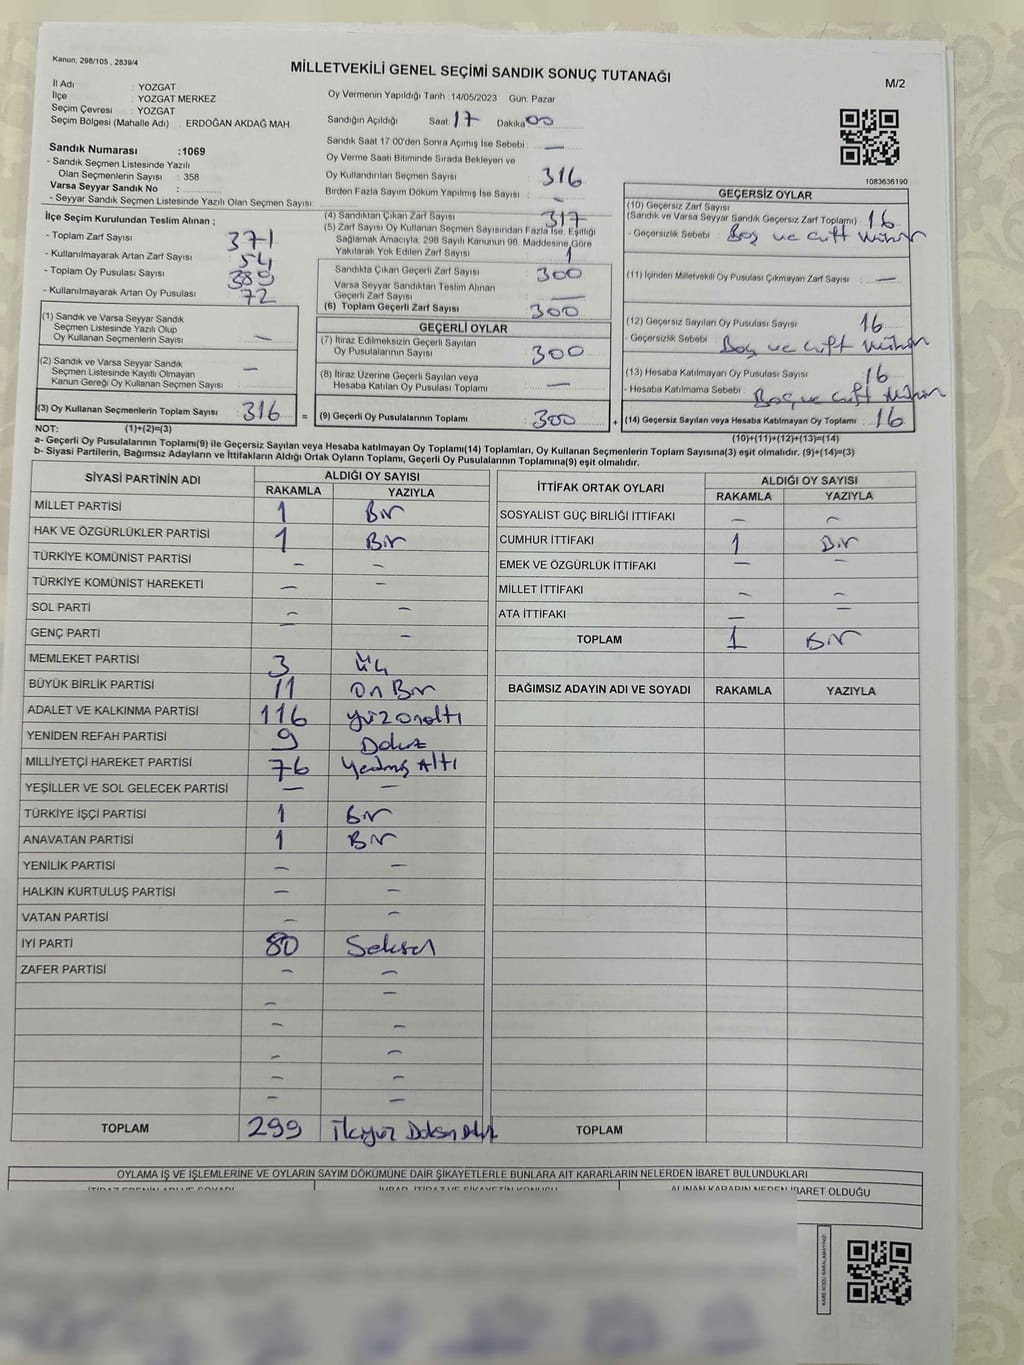 Kanun; 298/105 , 2839/4
MİLLETVEKİLİ GENEL SEÇİMİ SANDIK SONUÇ TUTANAĞI
M/2
İl Adı : YOZGAT
İlçe : YOZGAT MERKEZ
Seçim Çevresi : YOZGAT
Seçim Bölgesi (Mahalle Adı) : ERDOĞAN AKDAĞ MAH.
Oy Vermenin Yapıldığı Tarih :14/05/2023 Gün: Pazar
Sandığın Açıldığı Saat 17 Dakika 00
Sandık Saat 17.00'den Sonra Açılmış İse Sebebi : —
Oy Verme Saati Bitiminde Sırada Bekleyen ve
Oy Kullandırılan Seçmen Sayısı 316
Birden Fazla Sayım Döküm Yapılmış İse Sayısı : –
Sandık Numarası :1069
- Sandık Seçmen Listesinde Yazılı
Olan Seçmenlerin Sayısı : 358
Varsa Seyyar Sandık No :
- Seyyar Sandık Seçmen Listesinde Yazılı Olan Seçmen Sayısı:
1083636190
İlçe Seçim Kurulundan Teslim Alınan ;
- Toplam Zarf Sayısı 371
- Kullanılmayarak Artan Zarf Sayısı 54
- Toplam Oy Pusulası Sayısı 389
- Kullanılmayarak Artan Oy Pusulası 72
(1) Sandık ve Varsa Seyyar Sandık
Seçmen Listesinde Yazılı Olup
Oy Kullanan Seçmenlerin Sayısı : —
(2) Sandık ve Varsa Seyyar Sandık
Seçmen Listesinde Kayıtlı Olmayan
Kanun Gereği Oy Kullanan Seçmen Sayısı : —
(3) Oy Kullanan Seçmenlerin Toplam Sayısı : 316
(4) Sandıktan Çıkan Zarf Sayısı 317
(5) Zarf Sayısı Oy Kullanan Seçmen Sayısından Fazla İse, Eşitliği
Sağlamak Amacıyla, 298 Sayılı Kanunun 98. Maddesine Göre
Yakılarak Yok Edilen Zarf Sayısı 1
Sandıkta Çıkan Geçerli Zarf Sayısı 300
Varsa Seyyar Sandıktan Teslim Alınan
Geçerli Zarf Sayısı —
(6) Toplam Geçerli Zarf Sayısı 300
GEÇERLİ OYLAR
(7) İtiraz Edilmeksizin Geçerli Sayılan
Oy Pusulalarının Sayısı 300
(8) İtiraz Üzerine Geçerli Sayılan veya
Hesaba Katılan Oy Pusulası Toplamı —
= (9) Geçerli Oy Pusulalarının Toplamı 300
GEÇERSİZ OYLAR
(10) Geçersiz Zarf Sayısı
(Sandık ve Varsa Seyyar Sandık Geçersiz Zarf Toplamı) : 16
- Geçersizlik Sebebi : Boş ve çift mühür
(11) İçinden Milletvekili Oy Pusulası Çıkmayan Zarf Sayısı : —
(12) Geçersiz Sayılan Oy Pusulası Sayısı 16
- Geçersizlik Sebebi : Boş ve çift mühür
(13) Hesaba Katılmayan Oy Pusulası Sayısı 16
- Hesaba Katılmama Sebebi : Boş ve çift mühür
+ (14) Geçersiz Sayılan veya Hesaba Katılmayan Oy Toplamı : 16
NOT: (1)+(2)=(3)
(10)+(11)+(12)+(13)=(14)
a- Geçerli Oy Pusulalarının Toplamı(9) ile Geçersiz Sayılan veya Hesaba katılmayan Oy Toplamı(14) Toplamları, Oy Kullanan Seçmenlerin Toplam Sayısına(3) eşit olmalıdır. (9)+(14)=(3)
b- Siyasi Partilerin, Bağımsız Adayların ve İttifakların Aldığı Ortak Oyların Toplamı, Geçerli Oy Pusulalarının Toplamına(9) eşit olmalıdır.
SİYASİ PARTİNİN ADI ALDIĞI OY SAYISI
RAKAMLA YAZIYLA
MİLLET PARTİSİ 1 Bir
HAK VE ÖZGÜRLÜKLER PARTİSİ 1 Bir
TÜRKİYE KOMÜNİST PARTİSİ – –
TÜRKİYE KOMÜNİST HAREKETİ – –
SOL PARTİ – –
GENÇ PARTİ – –
MEMLEKET PARTİSİ 3 üç
BÜYÜK BİRLİK PARTİSİ 11 on Bir
ADALET VE KALKINMA PARTİSİ 116 yüz onaltı
YENİDEN REFAH PARTİSİ 9 Dokuz
MİLLİYETÇİ HAREKET PARTİSİ 76 Yetmiş Altı
YEŞİLLER VE SOL GELECEK PARTİSİ – –
TÜRKİYE İŞÇİ PARTİSİ 1 Bir
ANAVATAN PARTİSİ 1 Bir
YENİLİK PARTİSİ – –
HALKIN KURTULUŞ PARTİSİ – –
VATAN PARTİSİ – –
İYİ PARTİ 80 Seksen
ZAFER PARTİSİ – –
– –
– –
– –
– –
– –
TOPLAM 299 ikiyüz Doksan Dokuz
İTTİFAK ORTAK OYLARI ALDIĞI OY SAYISI
RAKAMLA YAZIYLA
SOSYALİST GÜÇ BİRLİĞİ İTTİFAKI – –
CUMHUR İTTİFAKI 1 Bir
EMEK VE ÖZGÜRLÜK İTTİFAKI – –
MİLLET İTTİFAKI – –
ATA İTTİFAKI – –
TOPLAM 1 Bir
BAĞIMSIZ ADAYIN ADI VE SOYADI RAKAMLA YAZIYLA
TOPLAM
OYLAMA İŞ VE İŞLEMLERİNE VE OYLARIN SAYIM DÖKÜMÜNE DAİR ŞİKAYETLERLE BUNLARA AİT KARARLARIN NELERDEN İBARET BULUNDUKLARI
İTİRAZ EDENİN ADI VE SOYADI İHBAR, İTİRAZ VE ŞİKAYETİN KONUSU ALINAN KARARIN NEDEN İBARET OLDUĞU
KARE KODU KARALAMAYINIZ!